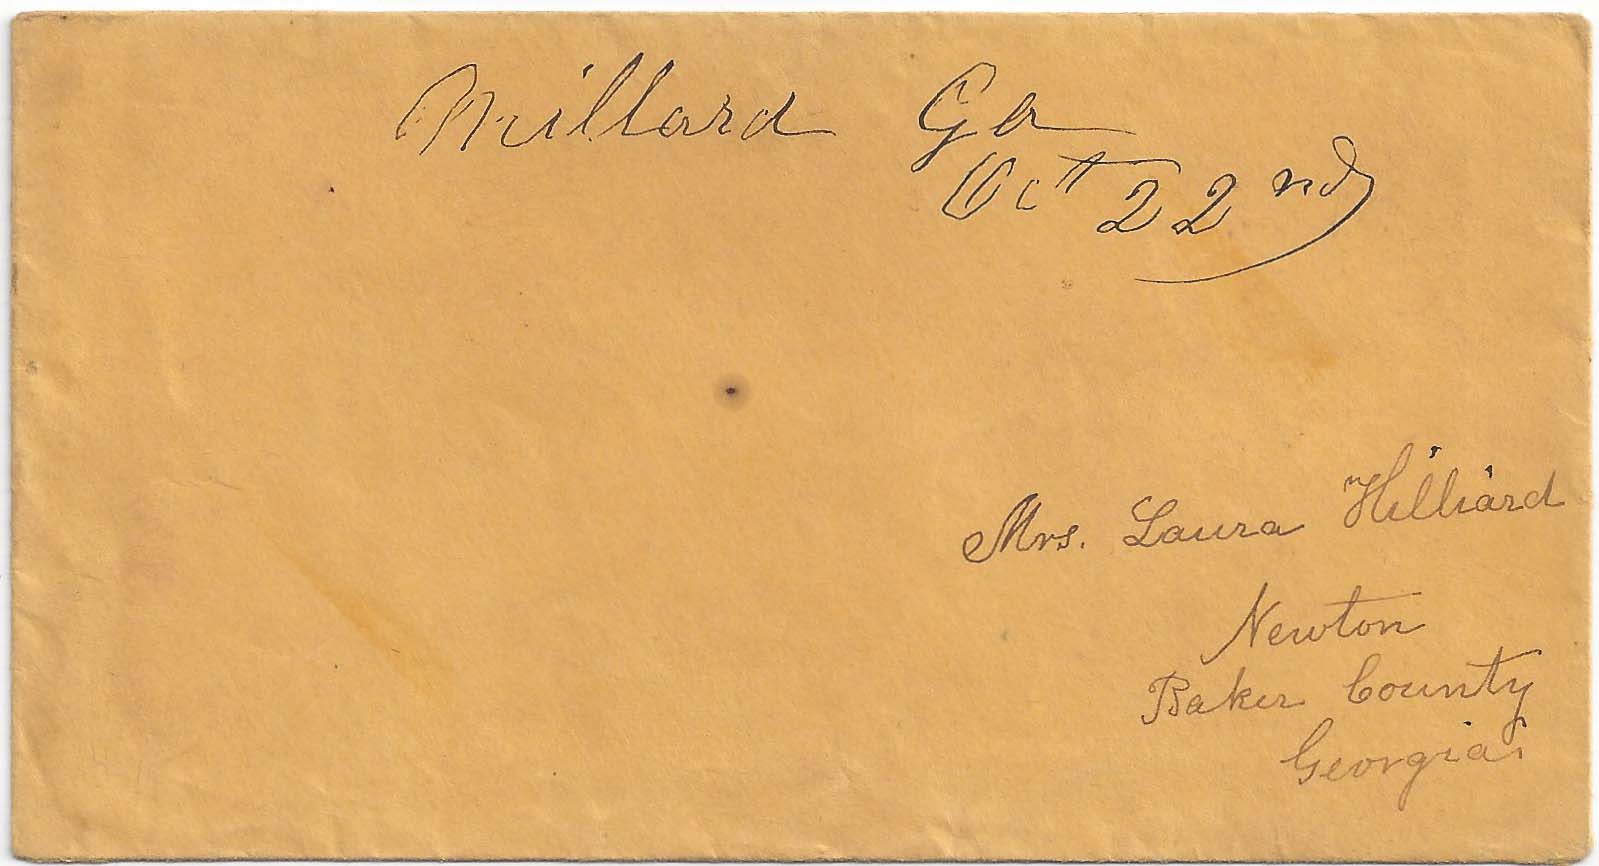 Millard Ga
Oct 22nd
Mrs. Laura Hilliard
Newton
Baker County
Georgia.